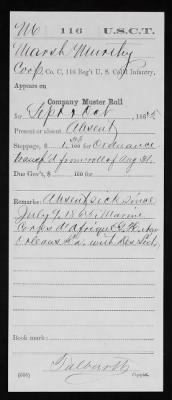 M 116 U.S.C.T.
Marsh Murthy
Corp, Co. C, 116 Reg't U. S. Col'd Infantry.
Appears on
Company Muster Roll
for Sept & Oct, 1865.
Present or absent Absent
Stoppage, $ 1 100 for Ordnance
transf'd from roll of Aug 31.
Due Gov't, $ 100 for
Remarks: Absent sick since
July 7, 186 Marine
Corps d'Afrique G. H. New
Orleans La. with Des. List.
Book mark:
Galbreath
(358) Copyist.